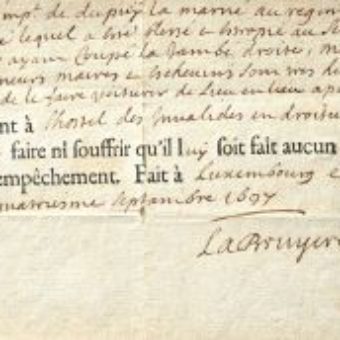 omp.ie de dupuy la marine au regim
é lequel a esté blessé et estropié au s
ayant coupé la jambe droite, m
neurs maires et eschevins sont tres h
de le faire voiturer de lieu en lieu a p
nt à l'hostel des Invalides en droitu
faire ni souffrir qu'il luy soit fait aucun
empêchement. Fait à Luxembourg e
quatriesme septembre 1697
LaBruyere